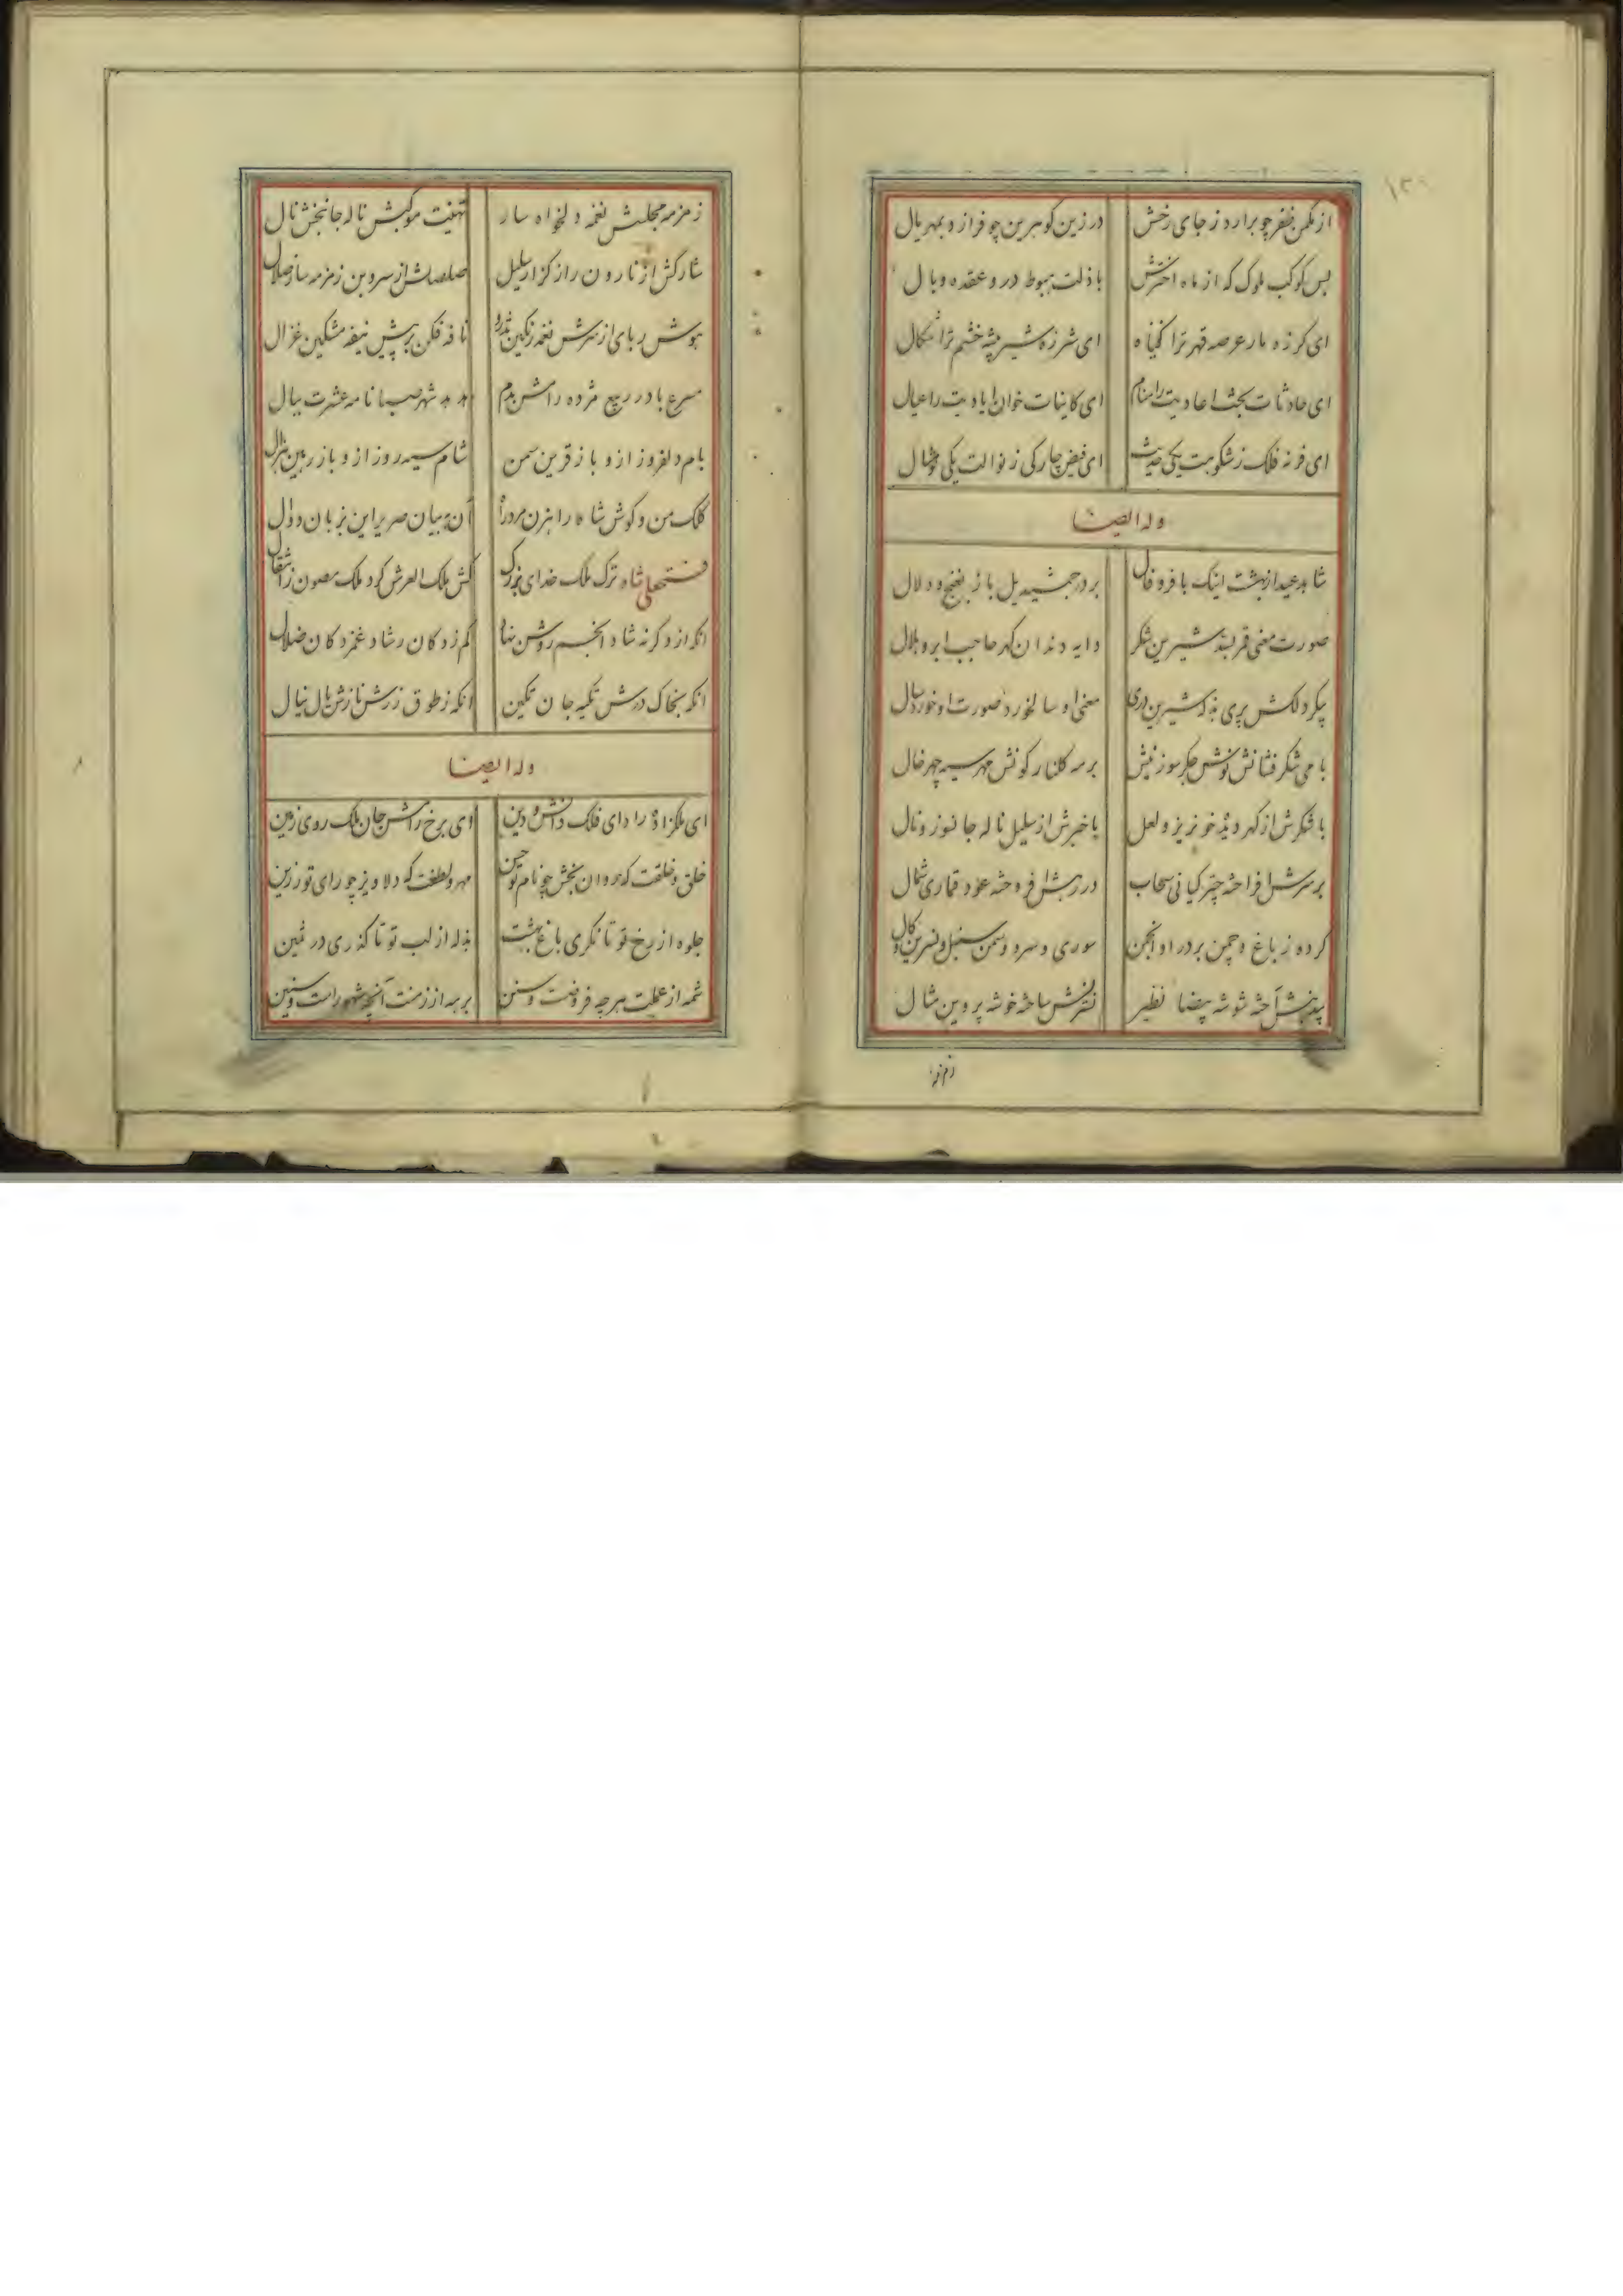 از مکمن ظفر چو برارد ز جای رخش
در زین کوهرین چو فرازد بهر یال
بس کوکب ملوک که از ماه اخترش
با ذلت هبوط در و عقده وبال
ای کرزه مار عرصه قهر ترا
ای شرزه شیر بیشه خشم ترا
ای حادثات
ای کاینات خوان ایادیت را عیال
ای
ای فیض چارکی ز نوالت یکی
وله ایضا
شاهد عید از بهشت اینک با فر و فال
بر در جمشید یل باز بغنج و دلال
صورت معنی شیرین شکر
دایه دندان کهر حاجب ابرو هلال
پیکر دلکش پری
معنی او سالخورد صورت او خورد سال
با می شکر فشانش نوشش جکر سوز نیش
بر مه کلنار کونش مهر سیه چهر خال
با شکرش از کهر خونریز و لعل
ناله جانسوز و نال
بر سرش افراخته چتر کیانی سحاب
در رهش افروخته عود قماری شمال
کرده ز باغ و چمن بر در او انجمن
سوری و سرو و سمن سنبل و نسرین و کال
نظیر
نسترنش ساخته خوشه پروین مثال
زمزمه
زمزمه مجلسش نغمه دلخواه سار
تهنیت موکبش ناله جانبخش نال
شارکش از نارون
صلصلش از سروبن زمزمه ساز صلال
هوش ربای از سرش نغمه رنکین تذرو
نافه فکن پیش نیفه مشکین غزال
مسرع باد ربیع مژده رامش بدم
هدهد شهر صبا نامه عشرت ببال
بام دلفروز ازو باز قرین سمن
شام سیه روز ازو باز رهین
کلک من و کوش شاه را
آن به بیان صریر این بزبان و دال
فتحعلی شاه ترک ملک خدای بزرک
کش ملک العرش کرد ملک مصون ز انتقال
انکه ازو کرنه شاد انجم روشن
کم زدکان رشاد غمزدکان ضلال
انکه بخاک درش تکیه جان تکین
انکه ز طوق زرش نازش یال ینال
وله ایضا
ای ملکزاده راد ای فلک دانش و دین
وی برخ رامش جان ملک روی زمین
خلق و خلقت که روان بخش چو نام تو حسن
مهر و لطفت که دلاویز چو رای تو رزین
جلوه از رخ تو تا نکری باغ بهشت
بذله از لب تو تا کذری در ثمین
شمه از عملت هرچه فروضت و سنن
برهه از زمنت آنچه شهورست و سنین